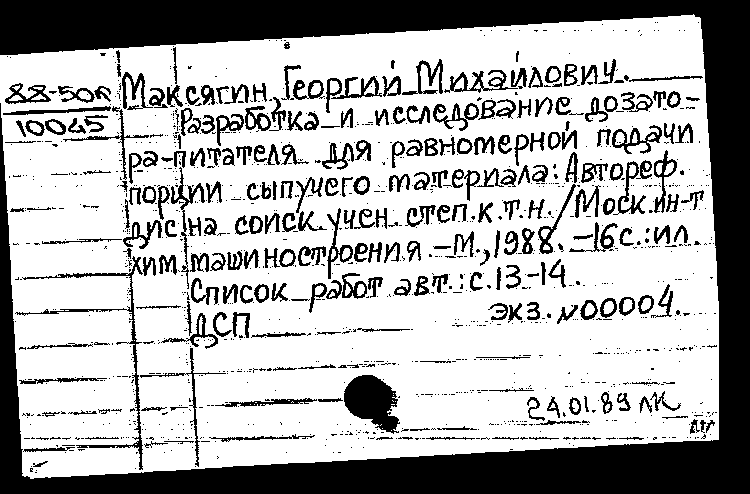 88-50л Максягин, Георгий Михайлович.
10045 Разработка и исследование дозато-
ра-питателя для равномерной подачи
порции сыпучего материала: Автореф.
дис. на соиск. учен. степ. к.т.н. / Моск. ин-т
хим. машиностроения. – М., 1988. – 16 с.: ил.
Список работ авт.: с. 13-14.
ДСП экз. №00004.
24.01.89 ЛК